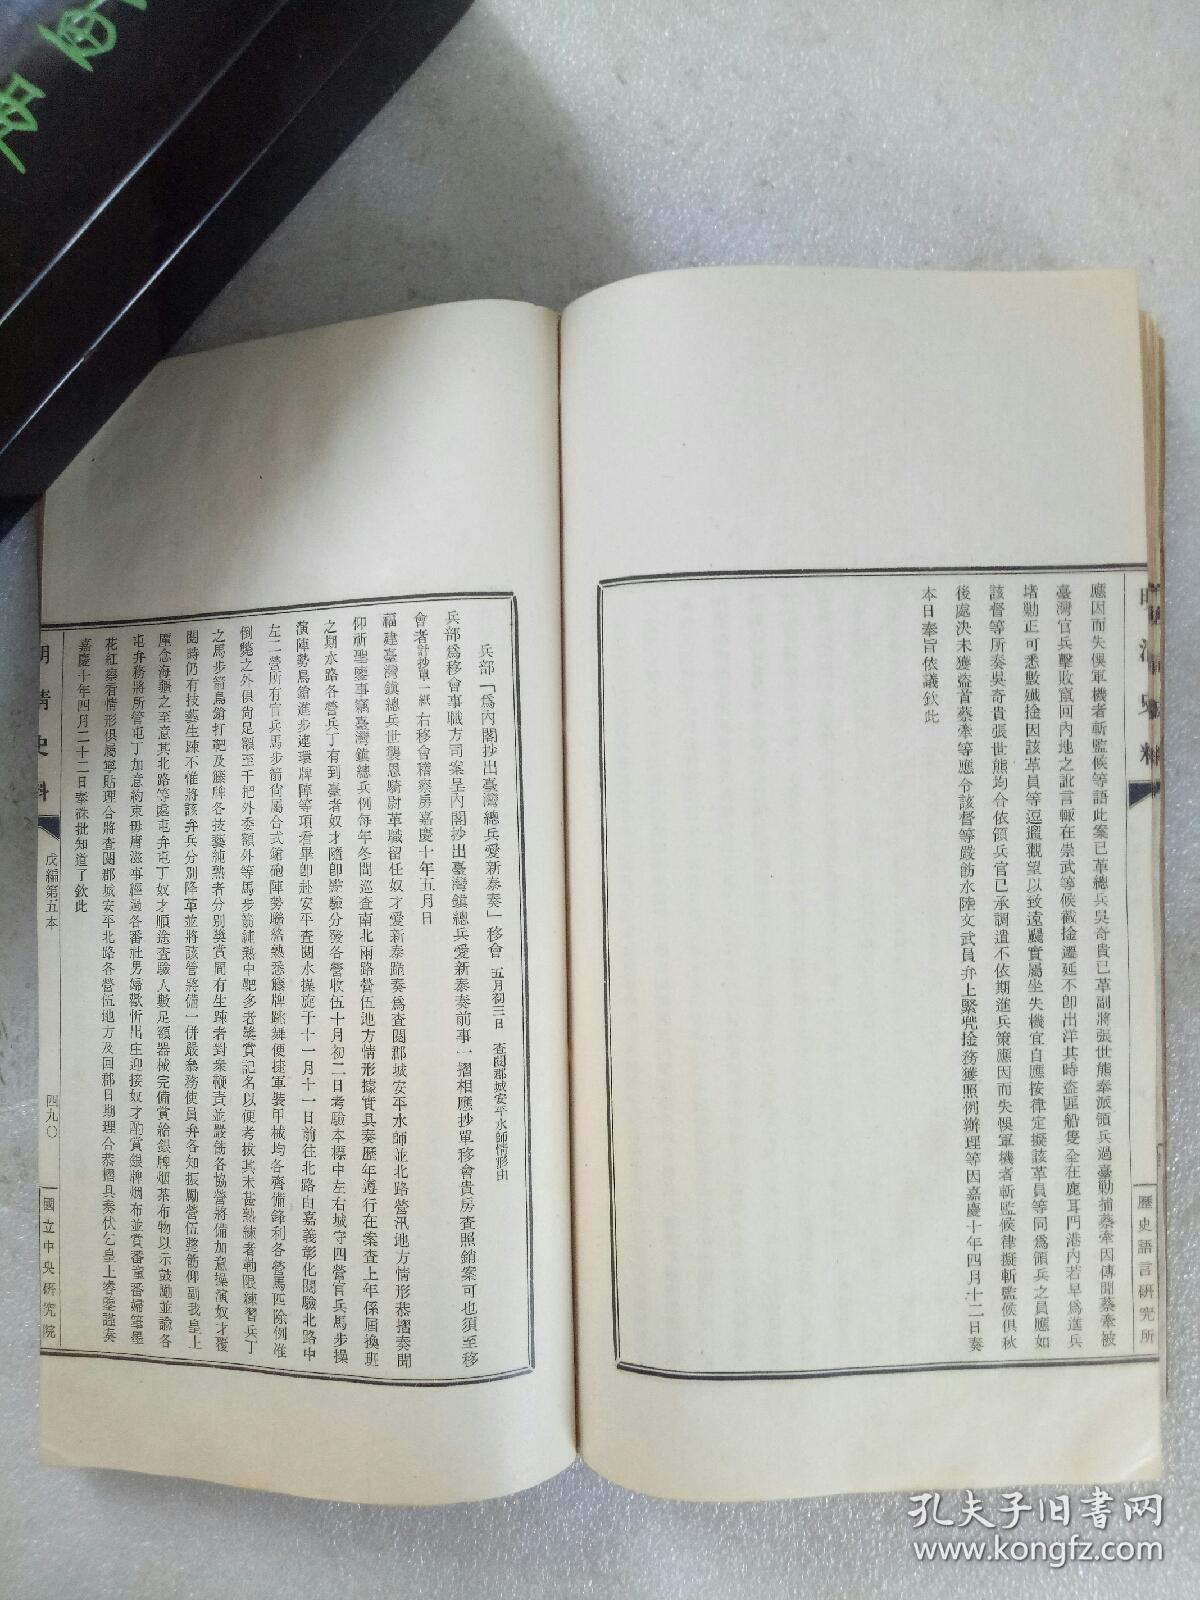 明清史料
歷史語言研究所
應因而失悞軍機者斬監候等語此案已革總兵吳奇貴已革副將張世熊奉派領兵過臺勦捕蔡牽因傳聞蔡牽被
臺灣官兵擊敗竄回內地之訛言輒在崇武等候截捦遷延不卽出洋其時盜匪船隻全在鹿耳門港內若早爲進兵
堵勦正可悉數殲捦因該革員等逗遛觀望以致遠颺實屬坐失機宜自應按律定擬該革員等同爲領兵之員應如
該督等所奏吳奇貴張世熊均合依領兵官已承調遣不依期進兵策應因而失悞軍機者斬監候律擬斬監候俱秋
後處決未獲盜首蔡牽等應令該督等嚴飭水陸文武員弁上緊兜捦務獲照例辦理等因嘉慶十年四月十二日奏
本日奉旨依議欽此
兵部「爲內閣抄出臺灣總兵愛新泰奏」移會 五月初三日 查閱郡城安平水師情形由
兵部爲移會事職方司案呈內閣抄出臺灣鎮總兵愛新泰奏前事一摺相應抄單移會貴房查照銷案可也須至移
會者計抄單一紙右移會稽察房嘉慶十年五月日
福建臺灣鎮總兵世襲恩騎尉革職留任奴才愛新泰跪奏爲查閱郡城安平水師並北路營汛地方情形恭摺奏聞
仰祈聖鑒事竊臺灣鎮總兵例每年冬間巡查南北兩路營伍地方情形據實具奏歷年遵行在案查上年係屆換班
之期水路各營兵丁有到臺者奴才隨卽點驗分發各營收伍十月初二日考驗本標中左右城守四營官兵馬步操
演陣勢鳥鎗進步連環牌陣等項看畢卽赴安平查閱水操旋于十一月十一日前往北路由嘉義彰化閱驗北路中
左二營所有官兵馬步箭尙屬合式鎗砲陣勢聯絡熟悉籐牌跳舞便捷軍裝甲械均各齊備鋒利各營馬匹除例准
倒斃之外俱尙足額至千把外委額外等馬步箭純熟中靶多者獎賞記名以便考拔其未甚熟練者勒限練習兵丁
之馬步箭鳥鎗打靶及籐牌各技藝純熟者分別獎賞間有生疎者對衆鞭責並嚴飭各協營將備加意操演奴才覆
閱時仍有技藝生疎不惟將該弁兵分別降革並將該管將備一併嚴叅務使員弁各知振勵營伍整飭仰副我皇上
廑念海疆之至意其北路等處屯弁屯丁奴才順途查驗人數足額器械完備賞給銀牌烟茶布物以示鼓勵並諭各
屯弁務將所管屯丁加意約束毋庸滋事經過各番社男婦歡忻出庄迎接奴才酌賞銀牌烟布並賞番童番婦筆墨
花紅察看情形俱屬寧貼理合將查閱郡城安平北路各營伍地方及回郡日期理合恭摺具奏伏乞皇上睿鑒謹奏
嘉慶十年四月二十二日奉硃批知道了欽此
明清史料
戊編第五本
四九〇
國立中央研究院
孔夫子旧书网
www.kongfz.com